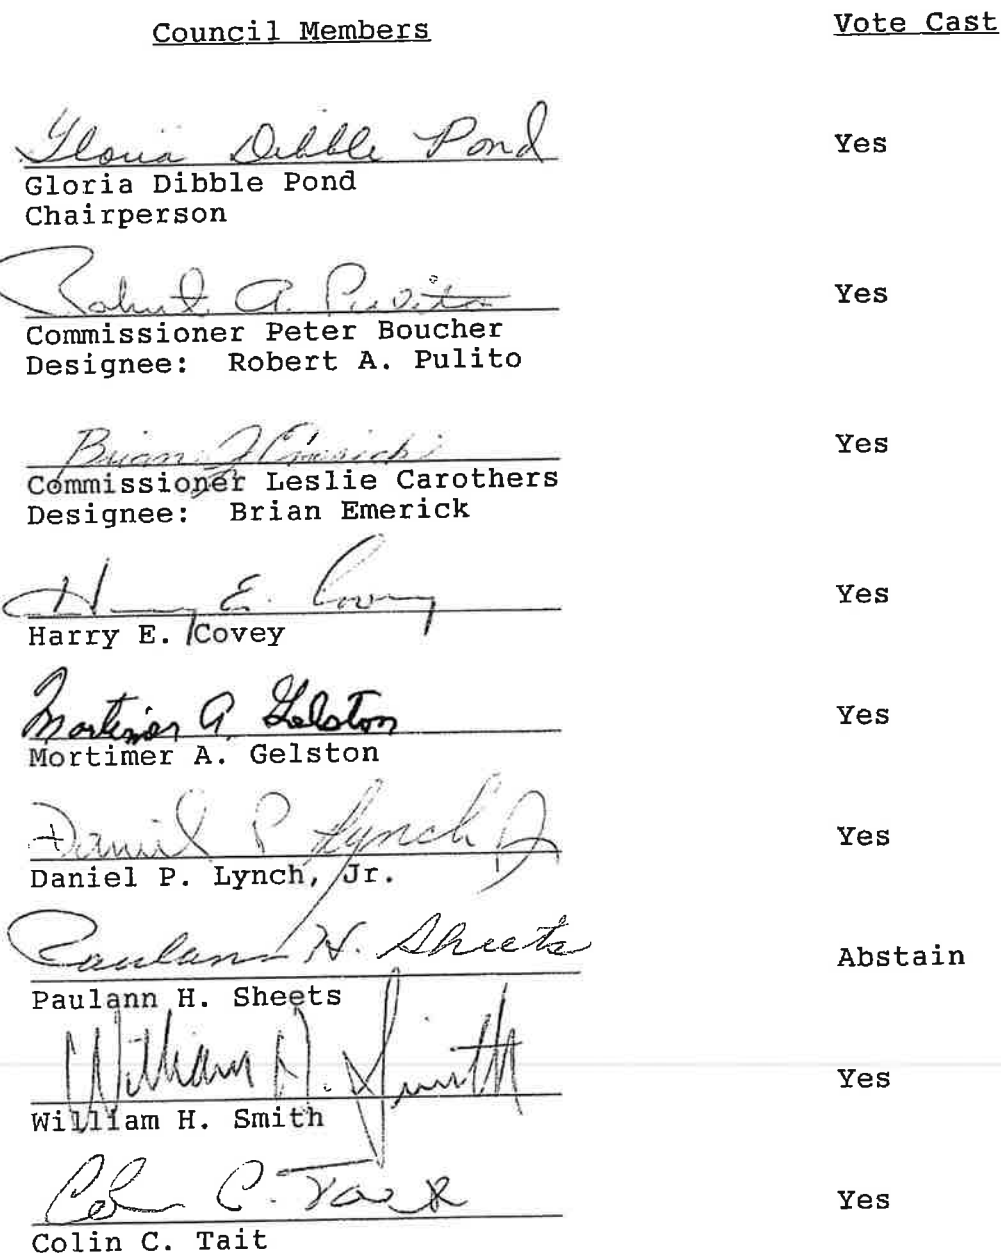 Council Members Vote Cast
Gloria Dibble Pond Yes
Gloria Dibble Pond
Chairperson
Robert A. Pulito Yes
Commissioner Peter Boucher
Designee: Robert A. Pulito
Brian J Emerick Yes
Commissioner Leslie Carothers
Designee: Brian Emerick
Harry E. Covey Yes
Harry E. Covey
Mortimer A. Gelston Yes
Mortimer A. Gelston
Daniel P. Lynch Jr Yes
Daniel P. Lynch, Jr.
Paulann H. Sheets Abstain
Paulann H. Sheets
William H. Smith Yes
William H. Smith
Colin C. Tait Yes
Colin C. Tait